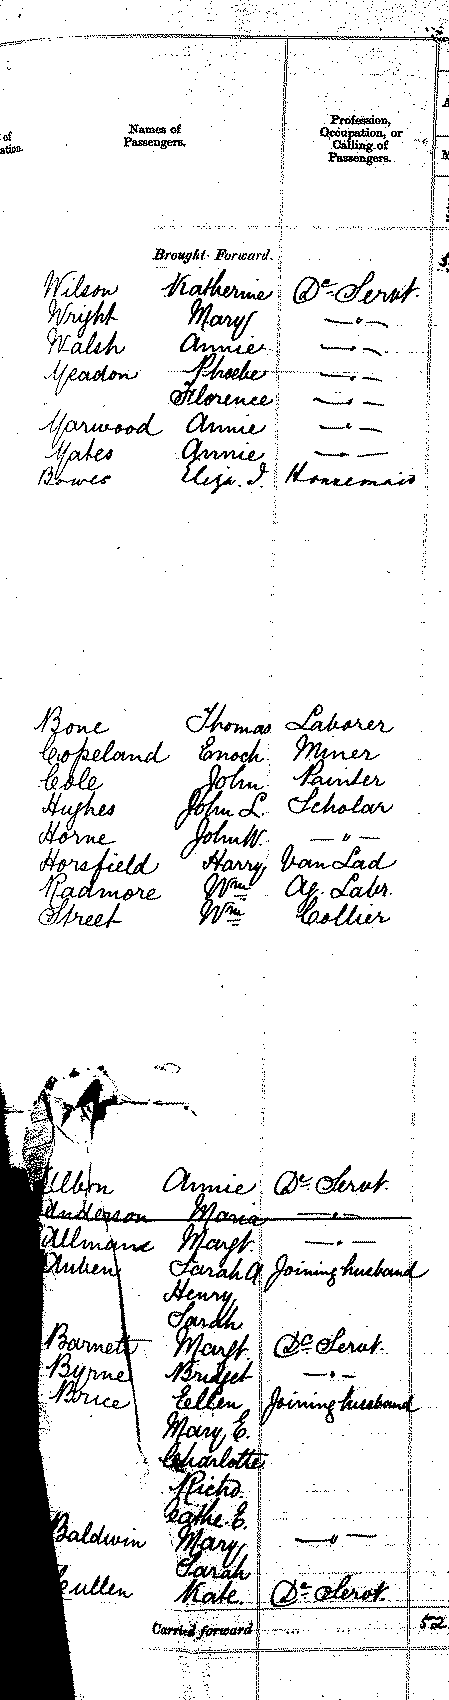 of
Names of
Passengers.
Profession,
Occupation, or
Calling of
Passengers.
Brought Forward.
Wilson Katherine Dc Servt.
Wright Mary — " —
Walsh Annie — " —
Yeadon Phoebe — " —
Florence — " —
Yarwood Annie — " —
Yates Annie — " —
Bowes Eliza. J. Housemaid
Bone Thomas Laborer
Copeland Enoch Miner
Cole John Painter
Hughes John L. Scholar
Horne John W. — " —
Horsfield Harry Van Lad
Radmore Wm Ag. Labr.
Street Wm Collier
Annie Dc Servt.
Anderson Maria — " —
Allmans Margt. — " —
Auben Sarah A Joining husband
Henry
Sarah
Barnett Margt. Dc Servt.
Byrne Bridget — " —
Brice Ellen Joining husband
Mary E.
Charlotte
Richd.
Cathe E.
Baldwin Mary — " —
Sarah
Cullen Kate. Dc Servt.
Carried forward 52